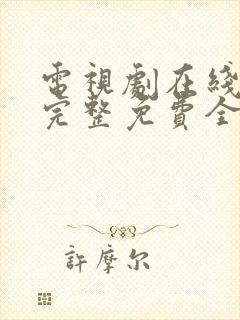 電視劇在綫
完整免費全
許摩尔